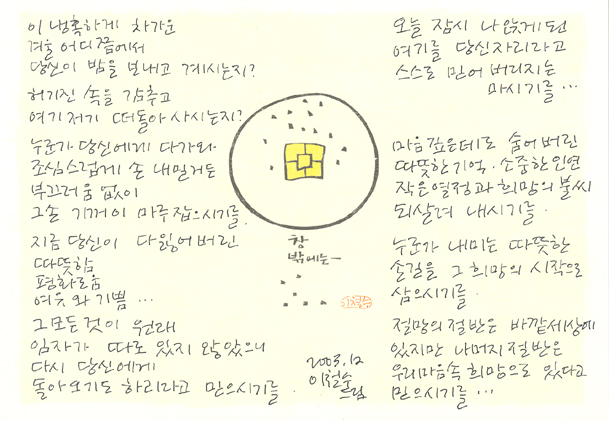 이 냉혹하게 차가운
겨울 어디쯤에서
당신이 밤을 보내고 계시는지?
허기진 속을 감추고
여기저기 떠돌아 사시는지?
누군가 당신에게 다가와
조심스럽게 손 내밀거든
부끄러움 없이
그 손 기꺼이 마주 잡으시기를.
지금 당신이 다 잃어버린
따뜻함
평화로움
여유와 기쁨 …
그 모든 것이 원래
임자가 따로 있지 않았으니
다시 당신에게
돌아오기도 하리라고 믿으시기를.
창
밖에는—
2003.12
이철수
드림
오늘 잠시 나앉게 된
여기를 당신자리라고
스스로 믿어 버리지는
마시기를 …
마음 깊은데로 숨어버린
따뜻한 기억·소중한 인연
작은 열정과 희망의 불씨
되살려 내시기를.
누군가 내미는 따뜻한
손길을 그 희망의 시작으로
삼으시기를.
절망의 절반은 바깥세상에
있지만 나머지 절반은
우리마음속 희망으로 있다고
믿으시기를 …